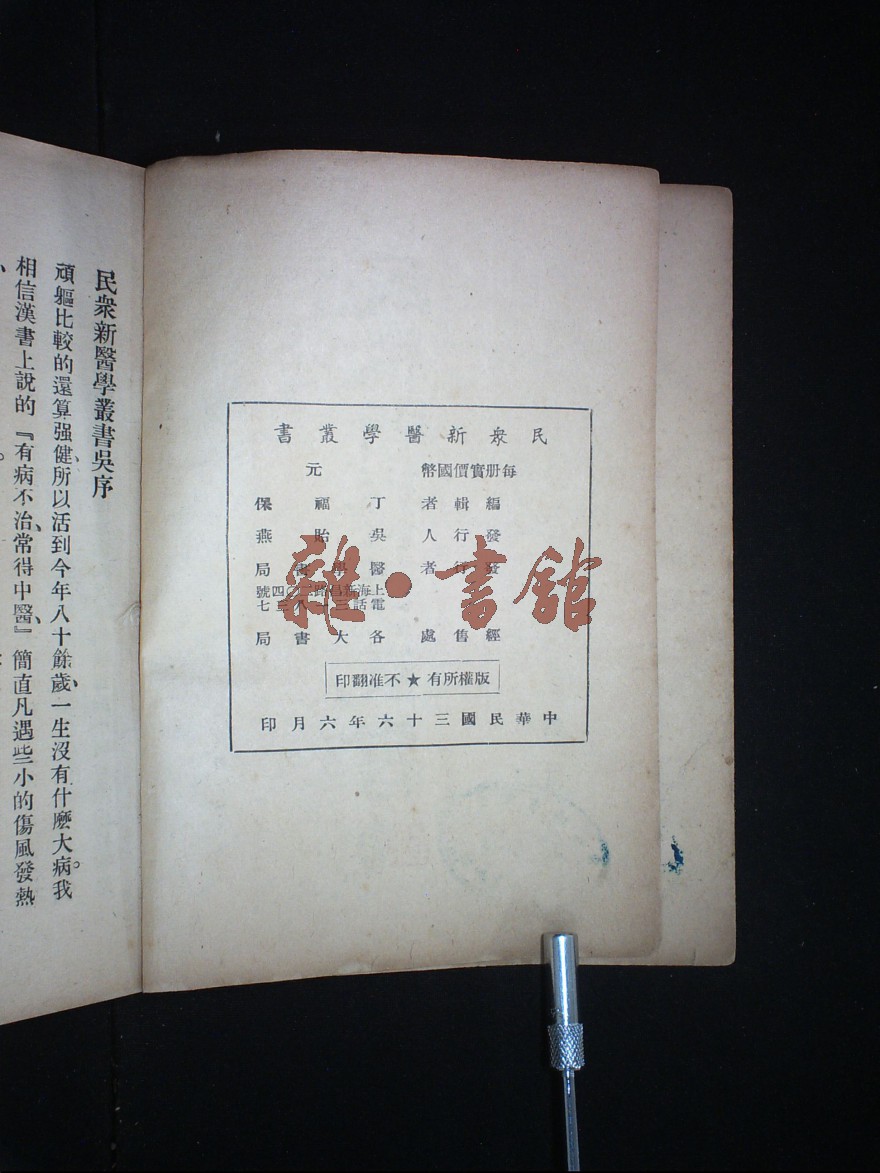 民衆新醫學叢書
每册實價國幣　元
編輯者　丁福保
發行人　吳貽燕
發行者　醫學書局
上海新昌路二〇四號
電話三一八三七
經售處　各大書局
版權所有★不准翻印
中華民國三十六年六月印
民衆新醫學叢書吳序
頑軀比較的還算强健、所以活到今年八十餘歲、一生沒有什麼大病。我
相信漢書上說的『有病不治、常得中醫、』簡直凡遇些小的傷風發熱
雜·書館